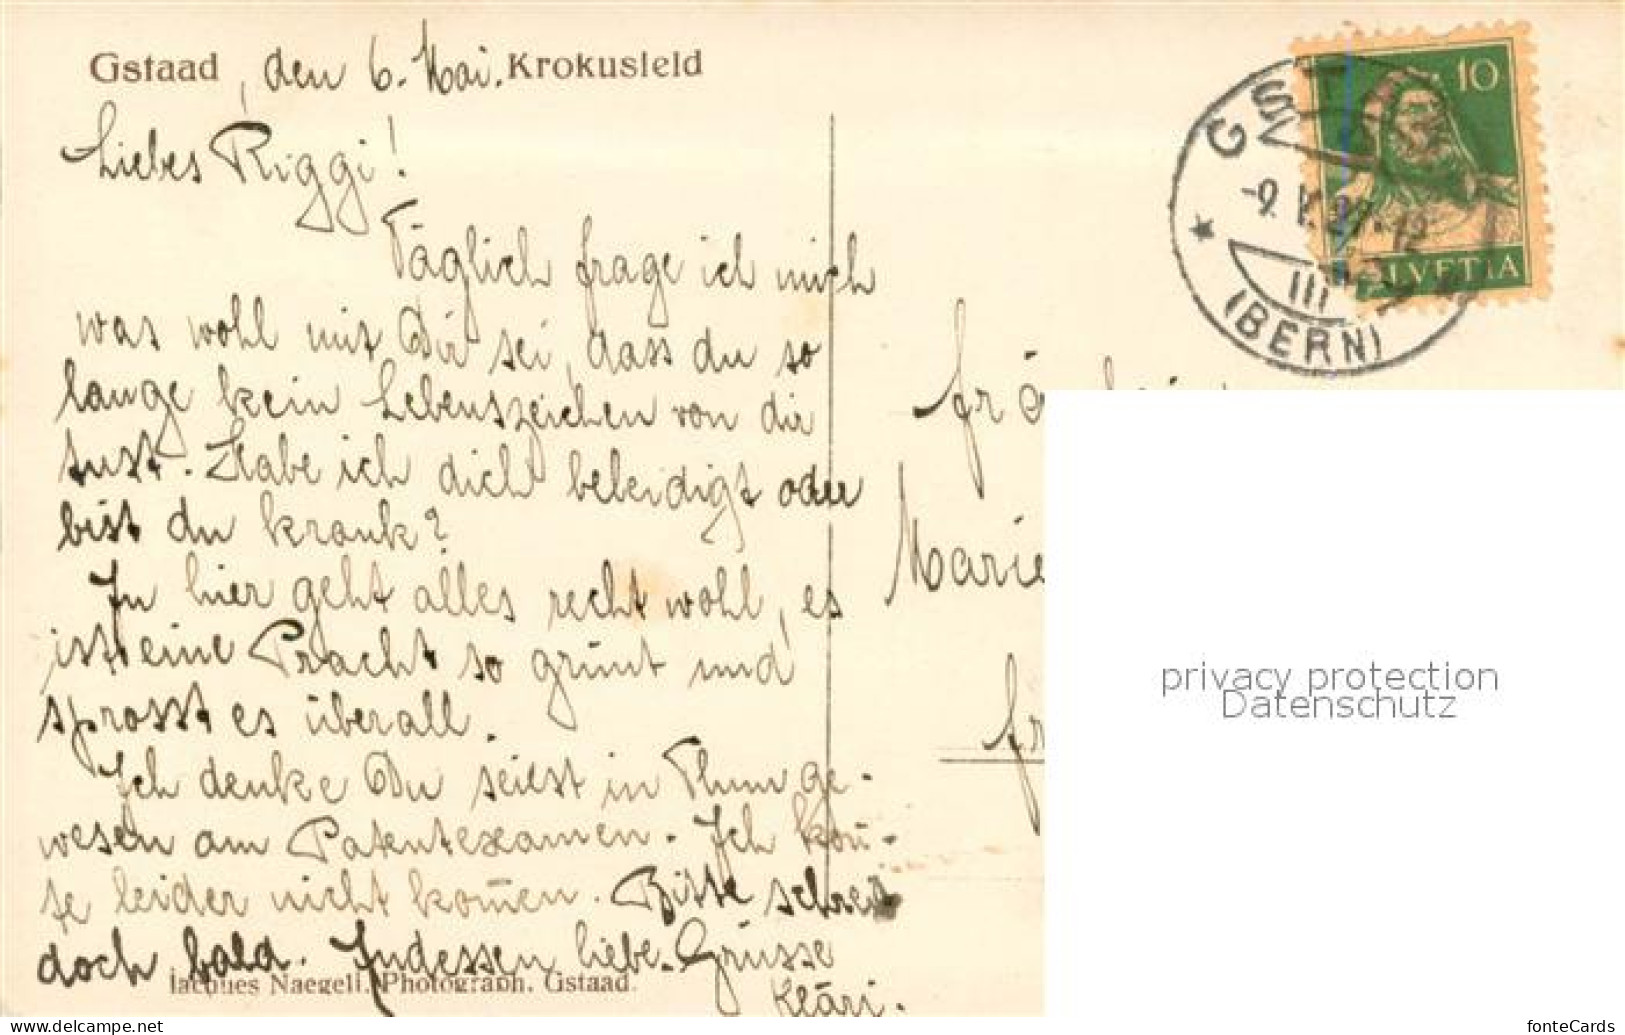 Gstaad, den 6. Mai. Krokusfeld
Liebes Riggi!
Täglich frage ich mich
was wohl mit Dir sei, dass du so
lange kein Lebenszeichen von dir
tust. Habe ich dich beleidigt oder
bist du krank?
In hier geht alles recht wohl, es
ist eine Pracht so grünt und
sprosst es überall.
Ich denke Du seiest in Thun ge-
wesen am Patentexamen. Ich kon̄-
te leider nicht kom̄en. Bitte schreib
doch bald. Indessen liebe Grüsse
Kläri.
Jacques Naegeli, Photograph, Gstaad.
10
HELVETIA
GSTAAD
-9. V. 27.-12
III
(BERN)
Marie
privacy protection
Datenschutz
https://www.delcampe.net
fonteCards